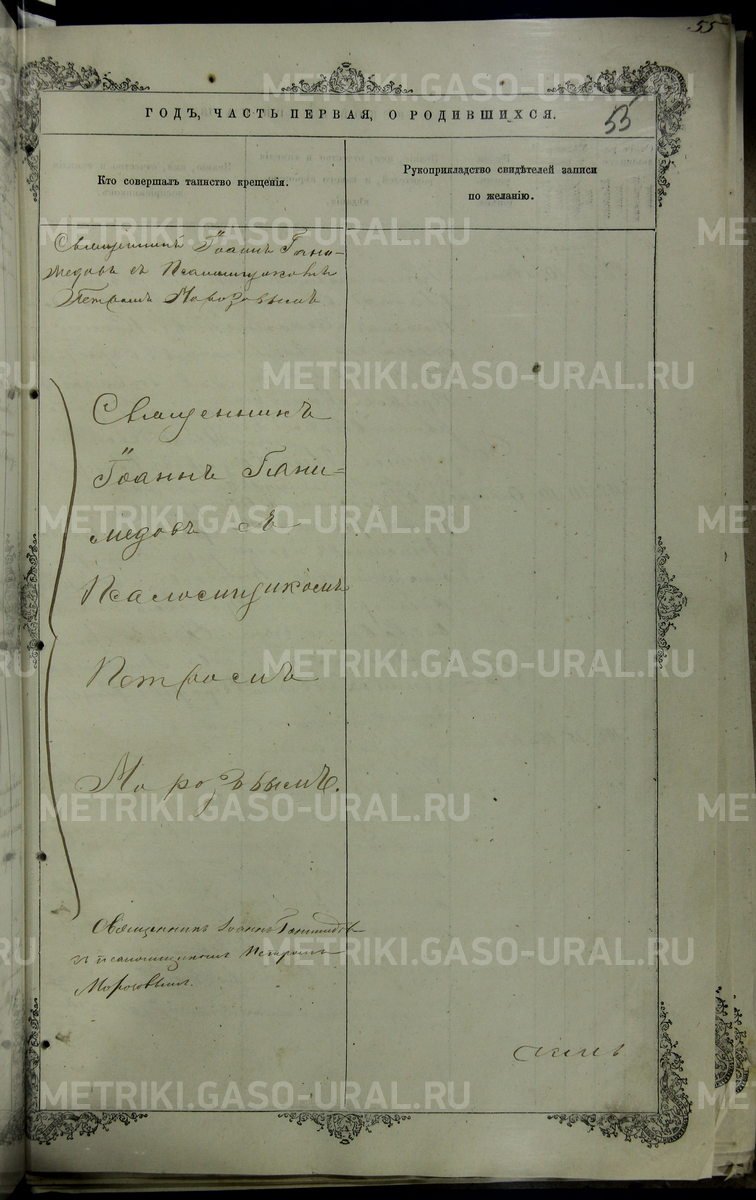 55
ГОДЪ, ЧАСТЬ ПЕРВАЯ, О РОДИВШИХСЯ.
55
Кто совершалъ таинство крещенія.
Рукоприкладство свидѣтелей записи
по желанію.
Священникъ Іоаннъ Гани-
медовъ съ Псаломщикомъ
Петромъ Морозовымъ
Священникъ
Іоаннъ Гани-
медовъ съ
Псаломщикомъ
Петромъ
Морозовымъ.
Священникъ Іоаннъ Ганимедовъ
съ псаломщикомъ Петромъ
Морозовымъ.
METRIKI.GASO-URAL.RU